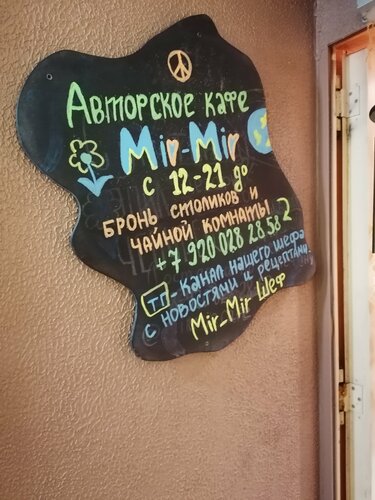 Авторское кафе
Mir-Mir
с 12-21 до
бронь столиков и
чайной комнаты
+7 920 028 28 58 2
тг - канал нашего шефа
с новостями и рецептами.
Mir_Mir Шеф